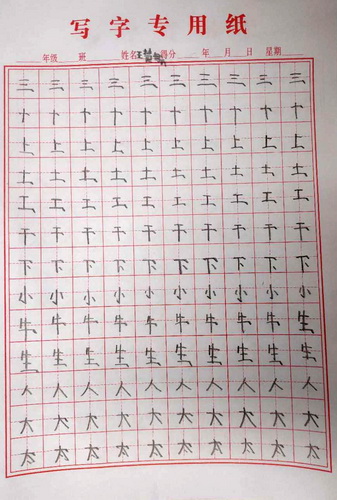 写字专用纸
年级 班 姓名 得分 年 月 日 星期
三 三 三 三 三 三 三 三 三 三
十 十 十 十 十 十 十 十 十 十
上 上 上 上 上 上 上 上 上 上
土 土 土 土 土 土 土 土 土 土
工 工 工 工 工 工 工 工 工 工
干 干 干 干 干 干 干 干 干 干
下 下 下 下 下 下 下 下 下 下
小 小 小 小 小 小 小 小 小 小
牛 牛 牛 牛 牛 牛 牛 牛 牛 牛
生 生 生 生 生 生 生 生 生 生
人 人 人 人 人 人 人 人 人 人
大 大 大 大 大 大 大 大 大 大
太 太 太 太 太 太 太 太 太 太